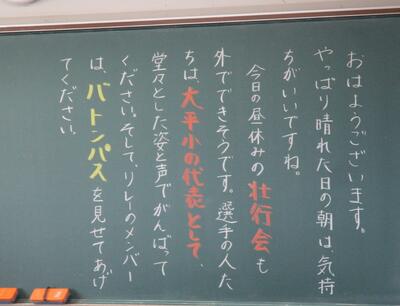 おはようございます。
やっぱり晴れた日の朝は、気持
ちがいいですね。
今日の昼休みの壮行会も
外でできそうです。選手の人た
ちは、大平小の代表として、
堂々とした姿と声でがんばって
ください。そして、リレーのメンバー
は、バトンパスを見せてあげ
てください。